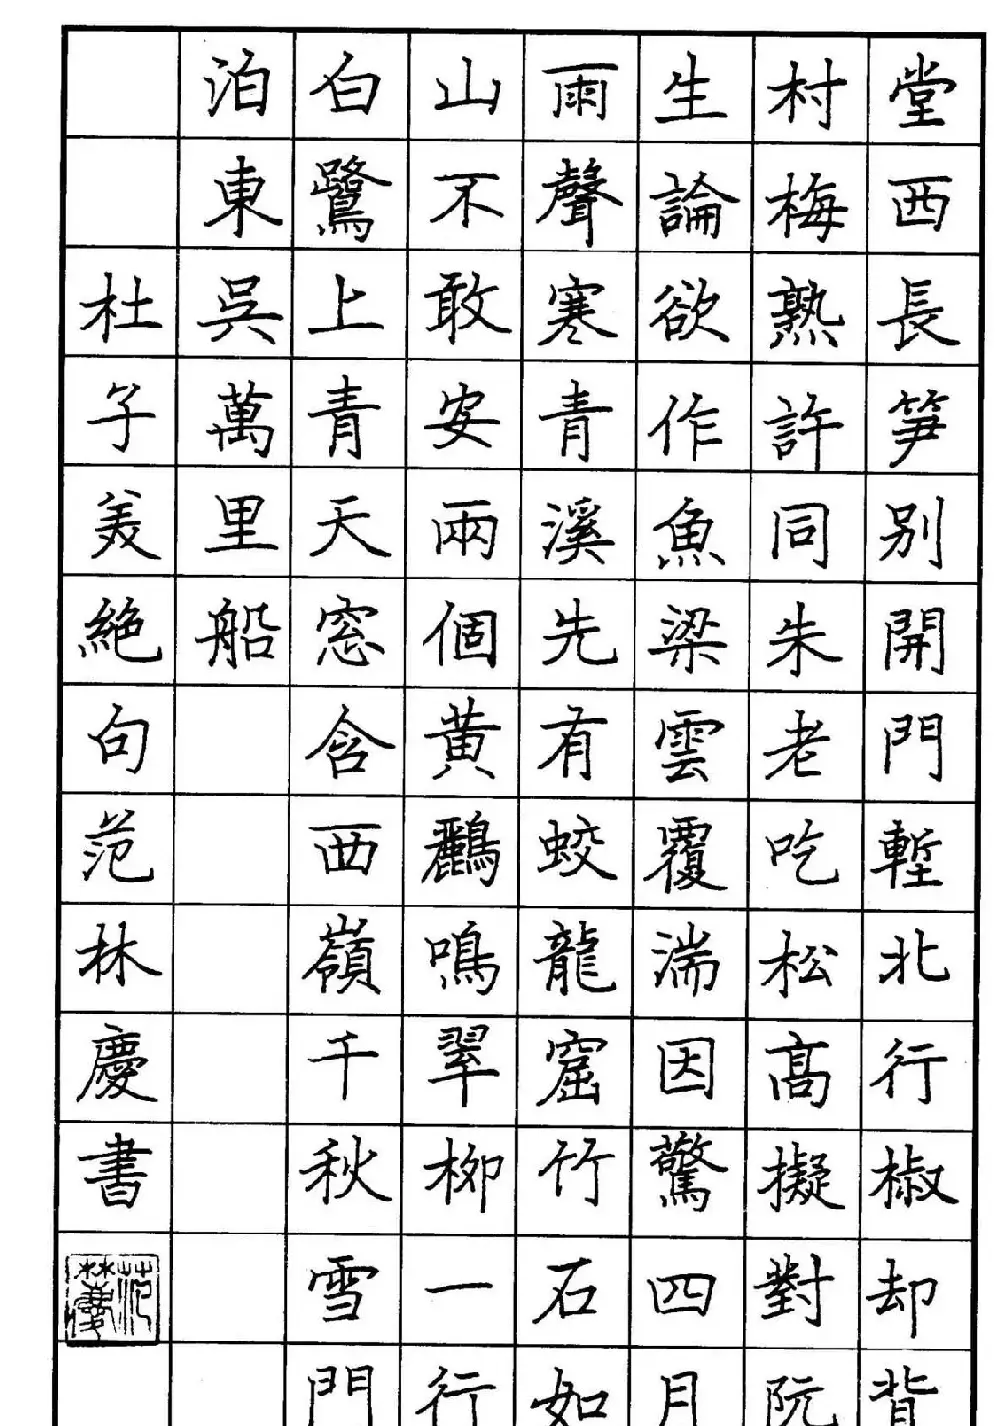 堂西長笋別開門塹北行椒却背
村梅熟許同朱老吃松高擬對阮
生論欲作魚梁雲覆湍因驚四月
雨聲寒青溪先有蛟龍窟竹石如
山不敢安兩個黃鸝鳴翠柳一行
白鷺上青天窓含西嶺千秋雪門
泊東吳萬里船
杜子美絕句范林慶書
范林慶